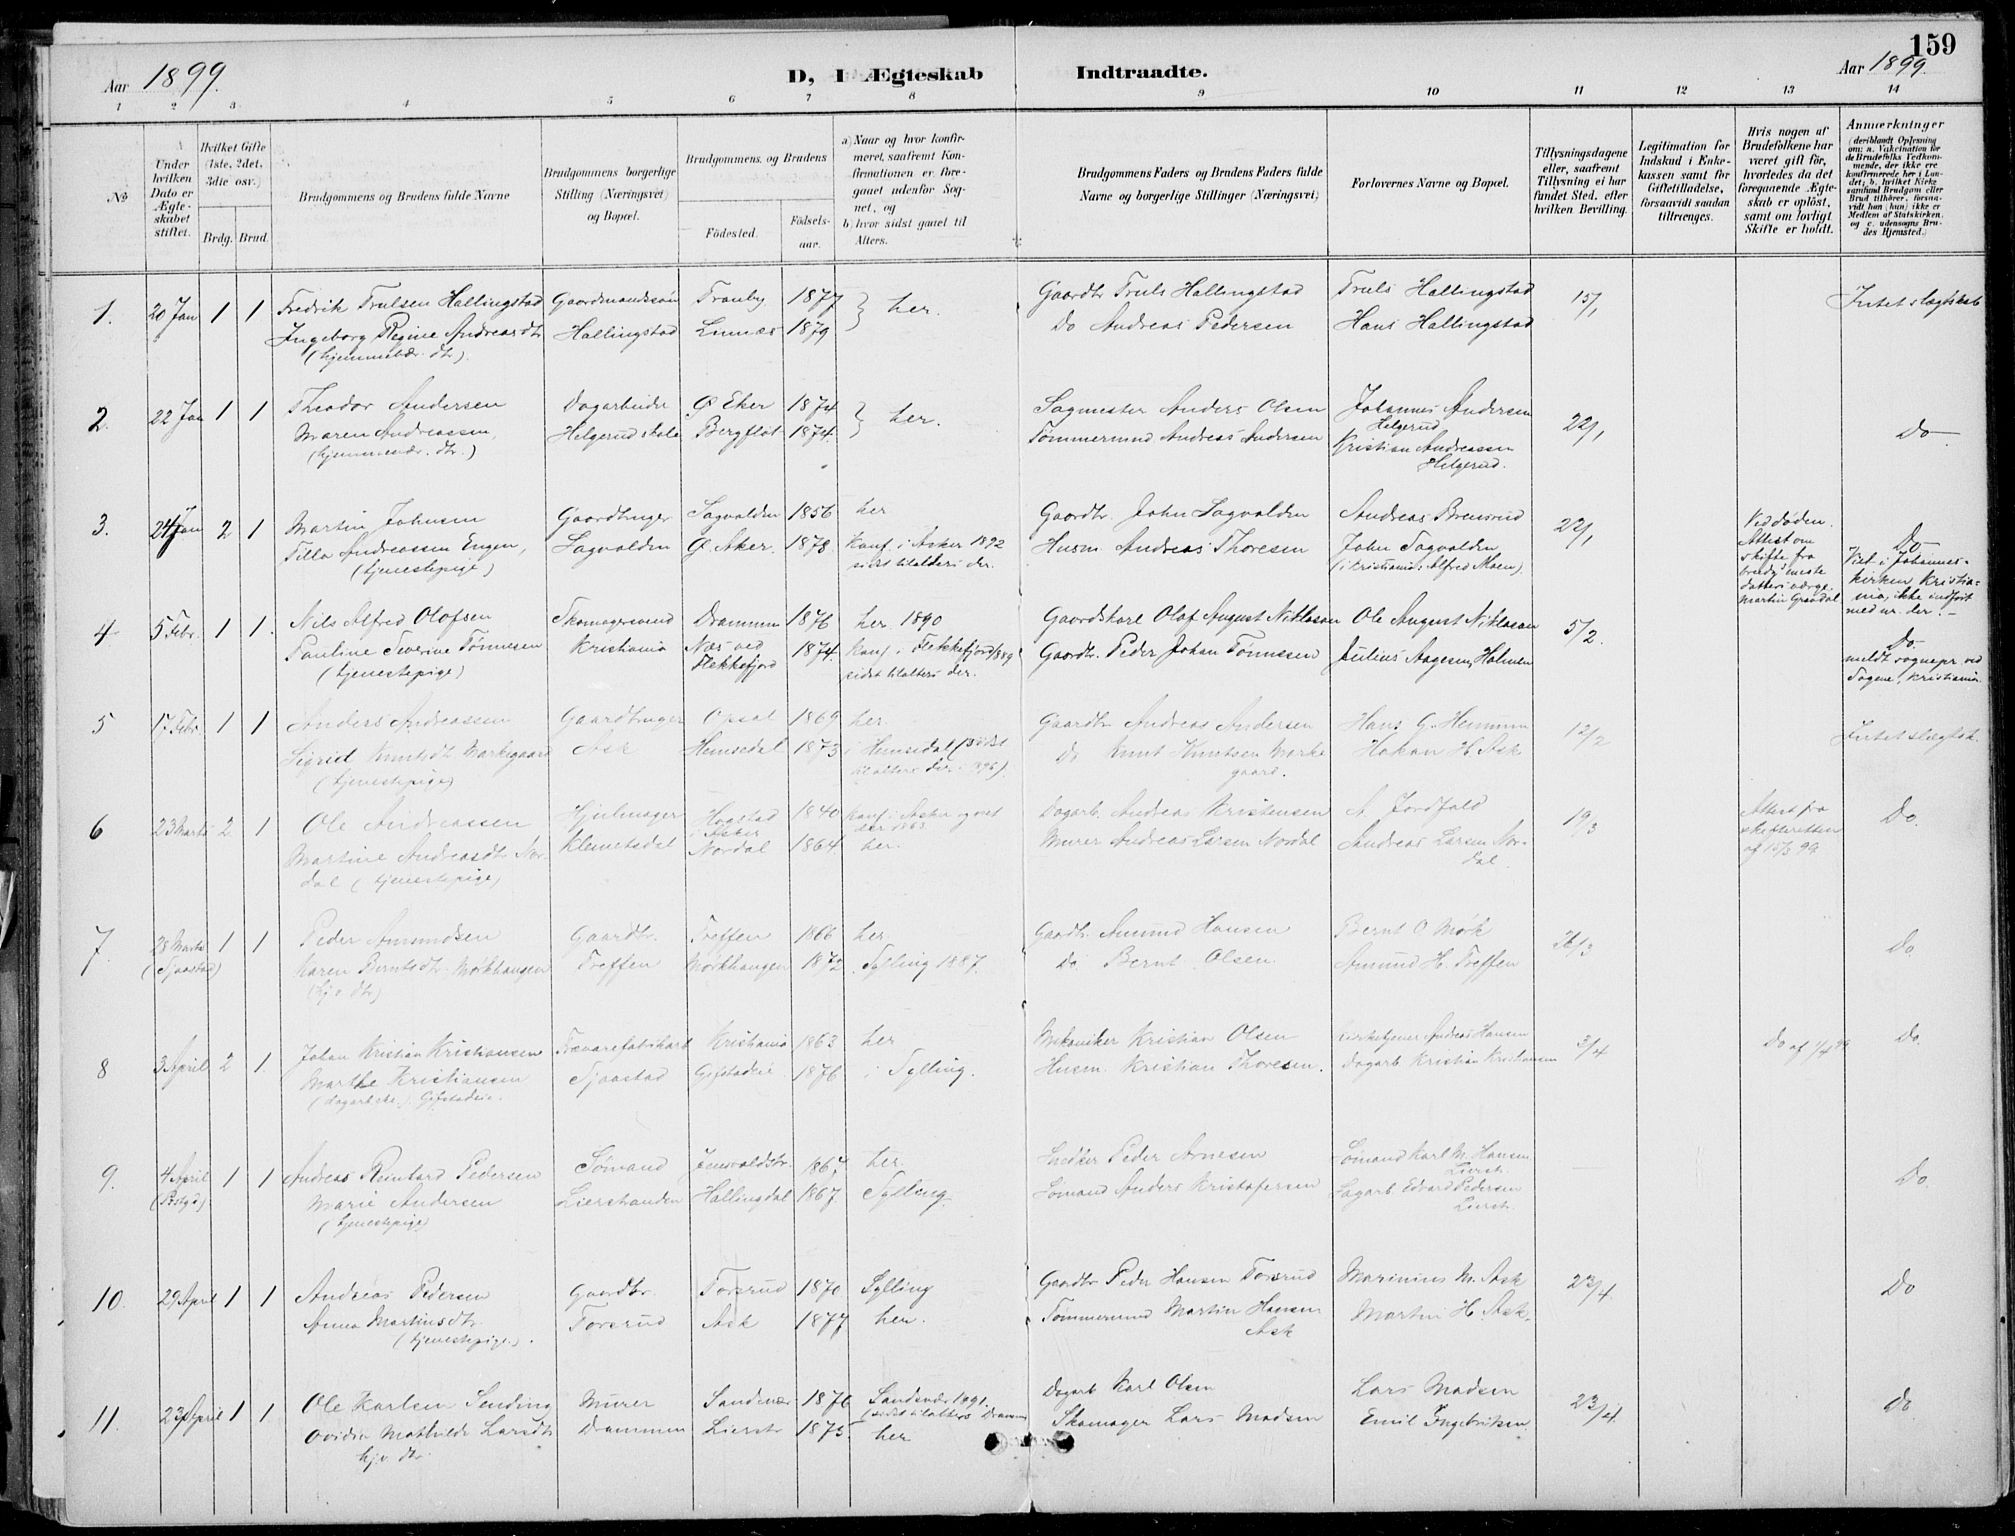 159
Aar 1899.
D, I Ægteskab Indtraadte.
Aar 1899.
1 2 3 4 5 6 7 8 9 10 11 12 13 14
No
Under hvilken Dato er Ægteskabet stiftet.
Hvilket Gifte (1ste, 2det, 3die osv.)
Brdg. Brud.
Brudgommens og Brudens fulde Navne
Brudgommens borgerlige Stilling (Næringsvei) og Bopæl.
Brudgommens og Brudens
Fødested. Fødselsaar.
a) Naar og hvor konfirmeret, saafremt Konfirmationen er foregaaet udenfor Sognet, og
b) hvor sidst gaaet til Alters.
Brudgommens Faders og Brudens Faders fulde Navne og borgerlige Stillinger (Næringsvei)
Forlovernes Navne og Bopæl.
Tillysningsdagene eller, saafremt Tillysning ei har fundet Sted, efter hvilken Bevilling.
Legitimation for Indskud i Enkekassen samt for Giftetilladelse, forsaavidt saadan tiltrænges.
Hvis nogen af Brudefolkene har været gift før, hvorledes da det foregaaende Ægteskab er opløst, samt om lovligt Skifte er holdt.
Anmærkninger
(deriblandt Oplysning om: a. Vakcination for de Brudefolks Vedkommende, der ikke ere konfirmerede her i Landet; b. hvilket Kirkesamfund Brudgom eller Brud tilhører, forsaavidt han (hun) ikke er Medlem af Statskirken, og c. udensogns Brudes Hjemsted.)
1. 20 Jan 1 1 Fredrik Trulsen Hallingstad Gaardmandssøn Tranby 1877 } her. Gaardbr Truls Hallingstad Truls Hallingstad 15/1 Intet slægtskab
Ingeborg Regine Andreasdtr Hallingstad Linnes 1879 Do Andreas Pedersen Hans Hallingstad
(hjemmevær. dtr).
2. 22 Jan 1 1 Theodor Andersen Dagarbeider Ø. Eker 1874 } her. Sagmester Anders Olsen Johannes Andersen 22/1 Do
Helgerud
Maren Andreassen, Helgerud skole Bergflot 1874. Tømmermand Andreas Andersen Kristian Andreassen
(hjemmevær. dtr.) Helgerud.
3. 24 Jan 2 1 Martin Johnsen Gaardbruger Sagvolden 1856 her Gaardbr. John Sagvolden Andreas Brensrud 22/1 Ved døden. Do
Tilla Andreassen Engen, Sagvolden Ø. Aker. 1878. Konf. i Asker 1892 Husm Andreas Thoresen John Sagvolden Attest om Viet i Johannes-
(tjenestepige) sidst tilalters der. (i Kristiania Alfred Moen). skifte fra kirken Kristia-
datters værge nia, ikke indført
Martin Graadal med nr. der. -
4 5 Febr. 1 1. Nils Alfred Olafsen Skomagersvend Drammen 1876 her 1890 Gaardskarl Olaf August Niklason Ole August Niklason 5/2. Do.
Pauline Severine Tønnesen Kristiania Næs ved 1874. Konf. i Flekkefjord 1889 Gaardbr. Peder Johan Tønnesen Julius Aagesen, Holmen meldt sognepr. ved
(tjenestepige) Flekkefjord sidst tilalters der. Sagene, Kristiania.
5 17 Febr. 1 1 Anders Andreassen Gaardbruger Opsal 1869 her Gaardbr Andreas Andersen Hans G. Hennum 12/2 Intet slægtsk.
Sigrid Knutsdtr Markegaard Ask Hemsedal 1873 i Hemsedal (sidst Do Knut Knutson Marke Hakan H. Ask
(tjenestepige) tilalters der. gaard.
6 23 Marts 2 1 Ole Andreassen Hjulmager Hogstad 1840 Konf. i Asker Dagarb. Andreas Kristensen A. Jordfald 19/3 Attest fra Do.
i Asker
Martine Andreasdtr Nor- Klemetsdal Nordal 1864. her. Murer Andreas Larsen Nordal Andreas Larsen Nor- skifteretten
dal (tjenestepige) dal. af 15/3 99
7. 28 Marts 1 1 Peder Amundsen Gaardbr. Treffen 1866 her Gaardbr. Amund Hansen Bernt O Mørk 26/3 Do.
(Sjaastad) Karen Berntsdtr. Mørkhaugen Treffen Mørkhaugen 1872 Sylling 1887. Do. Bernt Olsen. Amund H. Treffen
(hjv. dtr)
8 3 April 2 1. Johan Kristian Kristiansen Trævarefabrikant Kristiania 1863 her Mekaniker Kristian Olsen Kirketjener Andreas Hansen 3/4 Do af 1/4 99 Do.
Marthe Kristiansen Sjaastad Gifstadeie 1876 i Sylling. Husm. Kristian Thoresen. Dagarb Kristian Kristiansen
(dagarbske.) Gifstadeie.
9. 4 April 1 1 Andreas Reinhard Pedersen Sømand 1867 her. Snedker Peder Arnesen Sømand Karl M. Hansen Do.
Lierstr.
Marie Andersen Lierstranden Hallingdal 1867. Sylling. Sømand Anders Kristofersen Sagarb Edvard Pedersen
(tjenestepige) Lierstr.
10. 29 April 1 1 Andreas Pedersen Gaardbr. Torsrud 1870 Sylling Gaardbr Peder Hansen Torsrud Marinius M. Ask 23/4. Do
Anna Martinsdtr. Torsrud Ask 1877 her. Tømmermand Martin Hansen Martin H. Ask.
(tjenestepige.). Ask
11. 23 April 1 1 Ole Karlsen Sending Murer Sandsvær 1876 Sandsvær 1891. Dagarb Karl Olsen Lars Madsen 23/4. Do
(sidst tilalters Drammen
Ovidia Mathilde Larsdtr Drammen Lierstr 1875 her Skomager Lars Madsen Emil Ingebriktsen.
hjv. dtr.